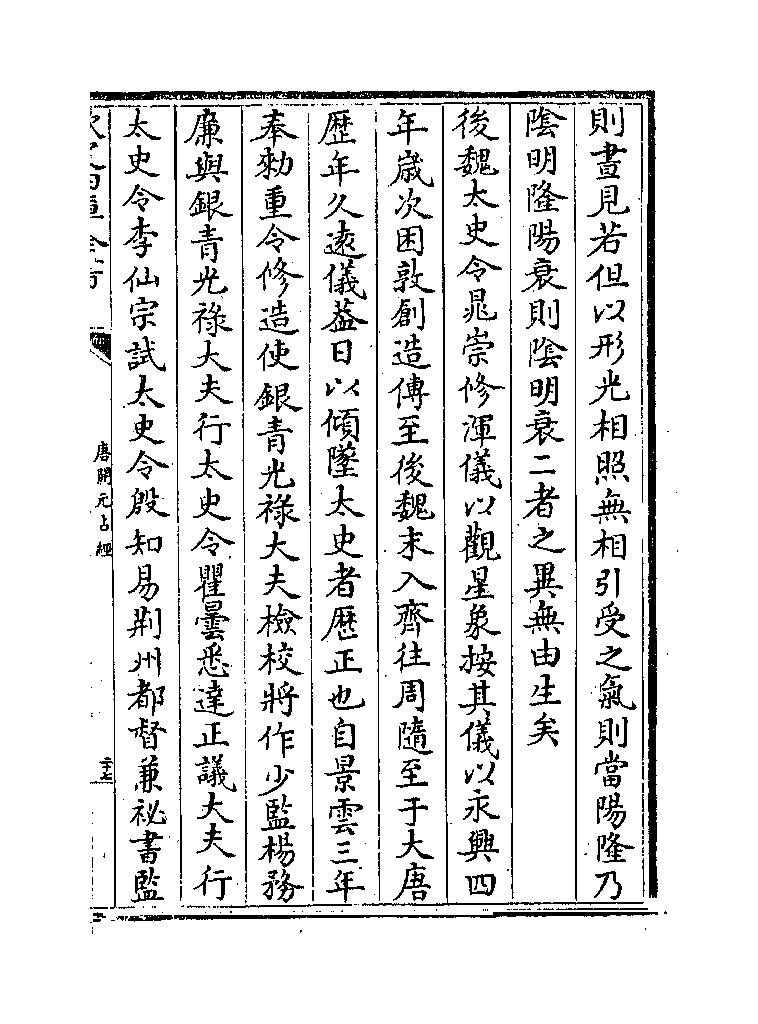 則晝見若但以形光相照無相引受之氣則當陽隆乃
陰明隆陽衰則陰明衰二者之異無由生矣
後魏太史令晁崇修渾儀以觀星象按其儀以永興四
年歲次困敦創造傳至後魏末入齊往周隨至于大唐
歴年久遠儀葢日以傾墜太史者歴正也自景雲三年
奉勑重令修造使銀青光祿大夫檢校將作少監楊務
廉與銀青光祿大夫行太史令瞿曇悉達正議大夫行
太史令李仙宗試太史令殷知易荆州都督兼祕書監
唐開元占經